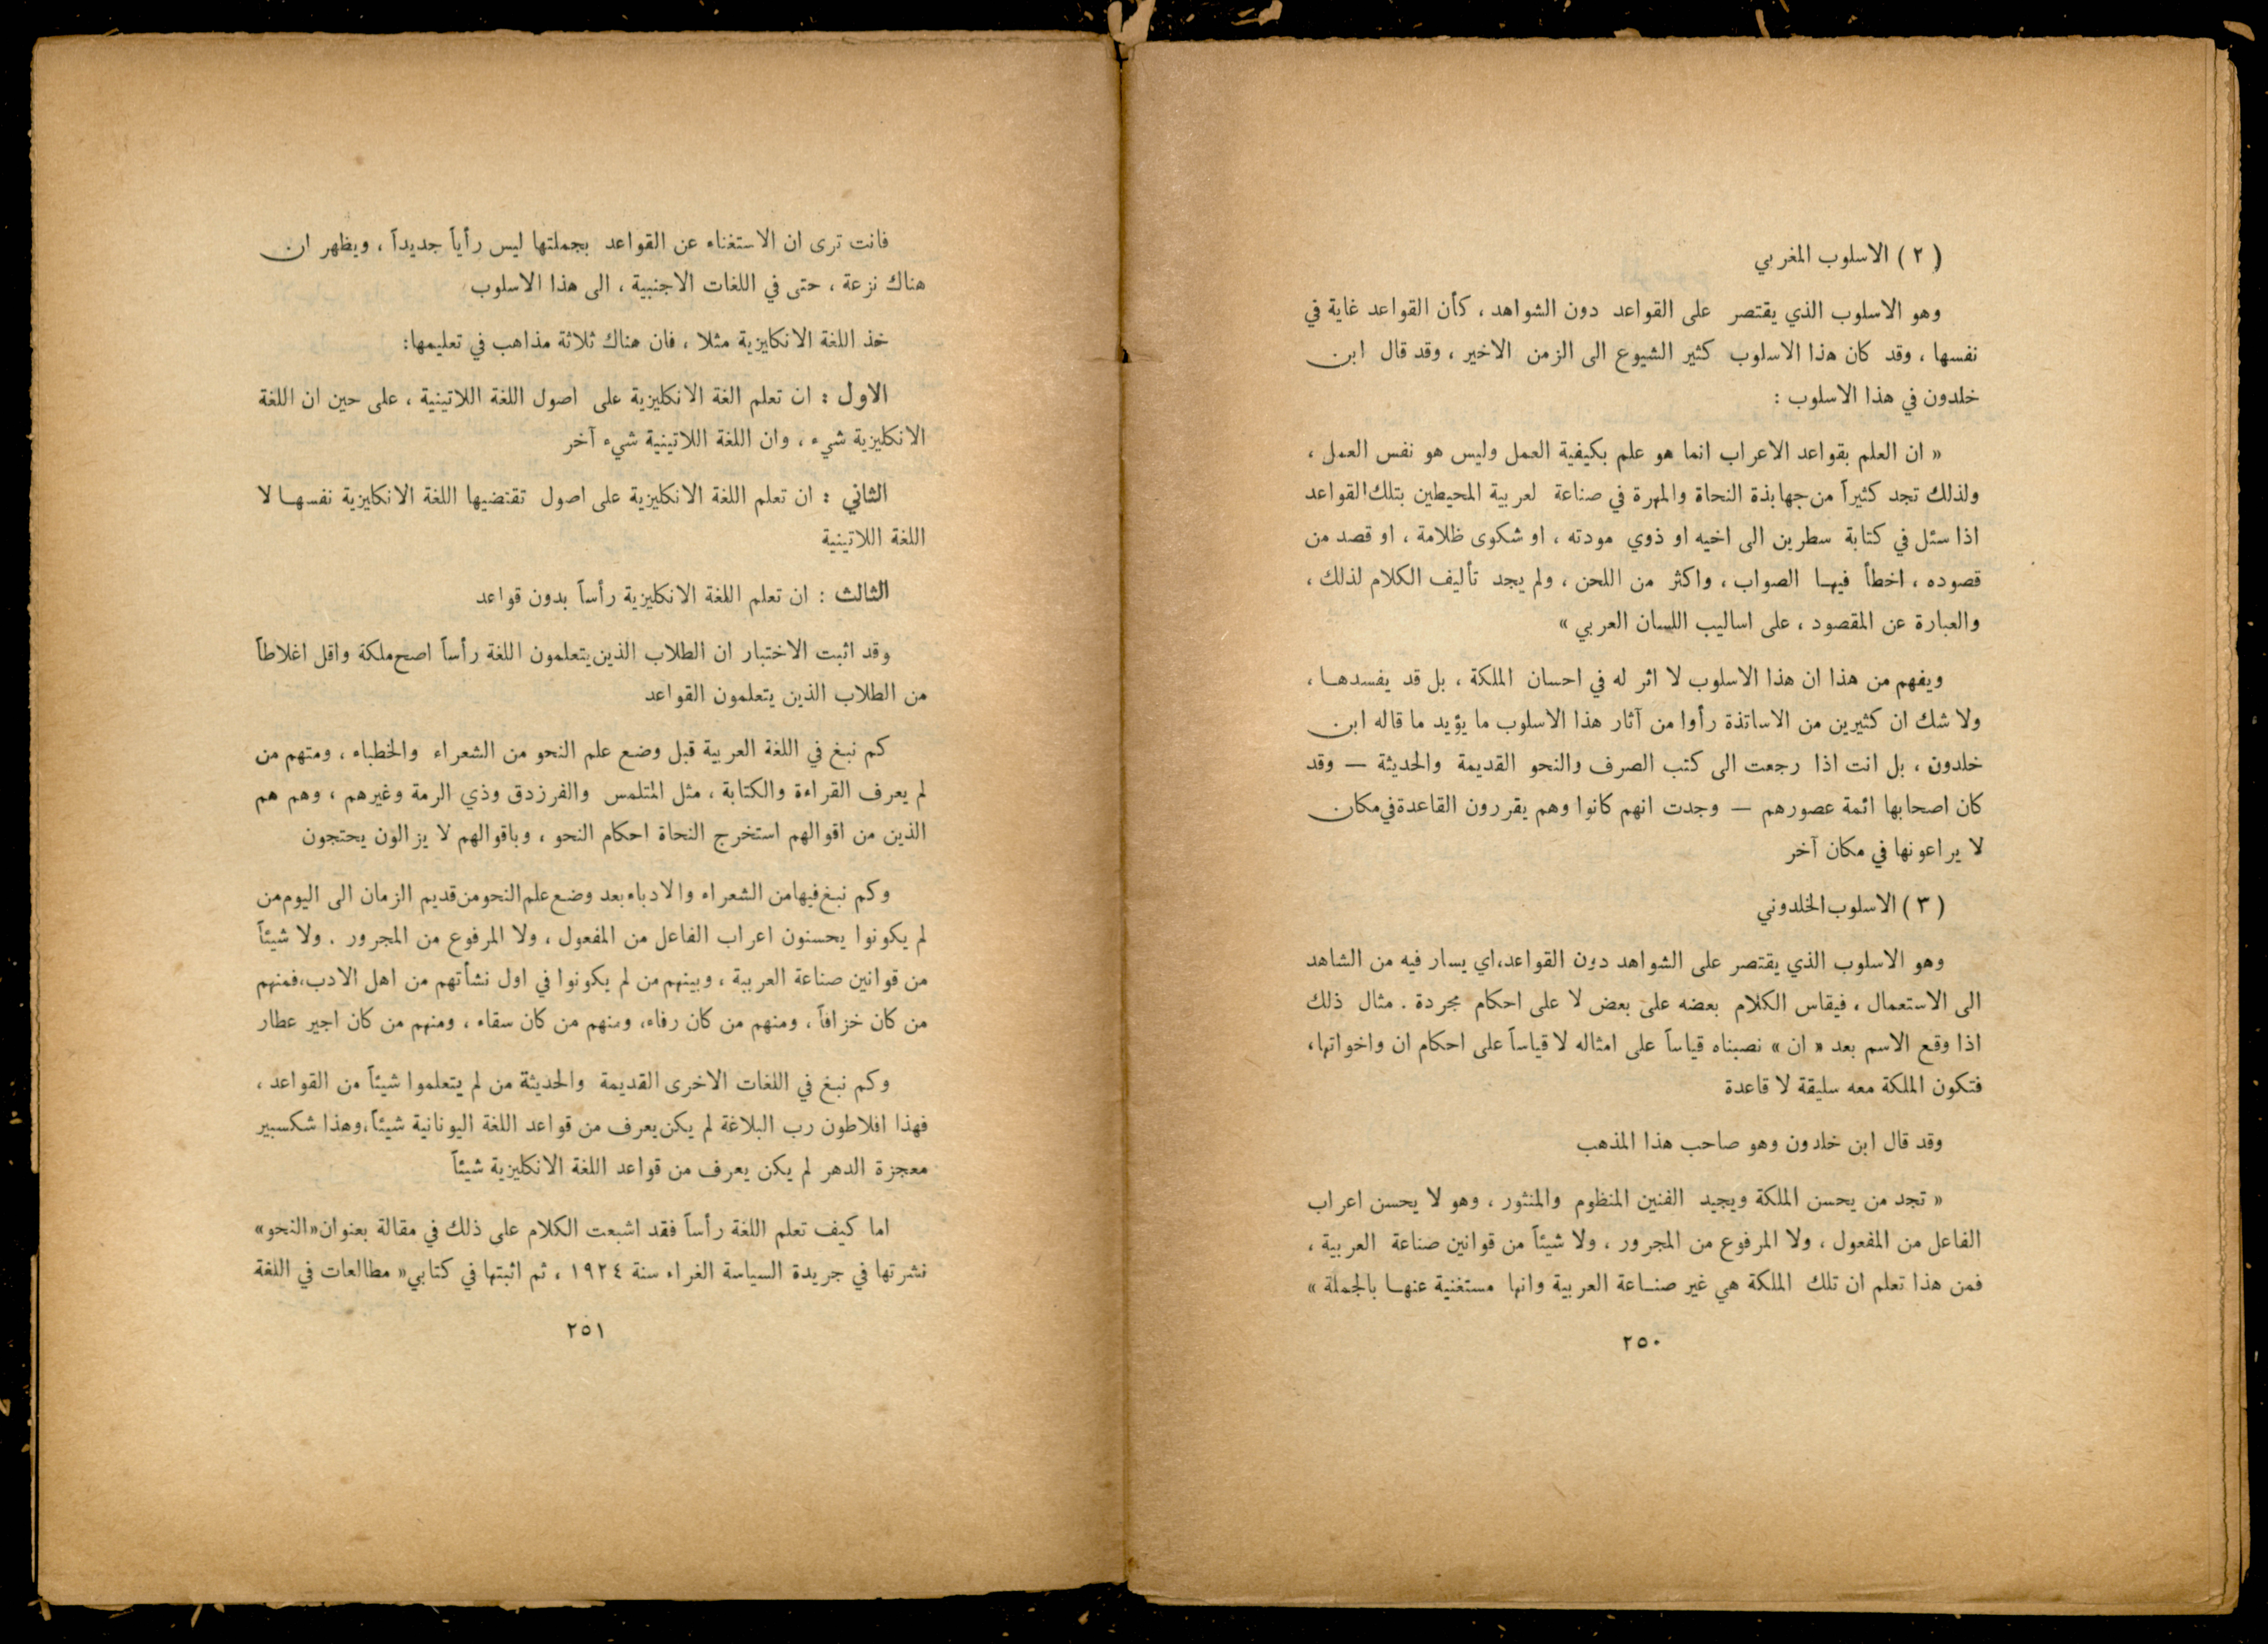 ( ٢ ) الاسلوب المغربي
وهو الاسلوب الذي يقتصر على القواعد دون الشواهد ، كأن القواعد غاية في
نفسها ، وقد كان هذا الاسلوب كثير الشيوع الى الزمن الاخير ، وقد قال ابن
خلدون في هذا الاسلوب :
« ان العلم بقواعد الاعراب انما هو علم بكيفية العمل وليس هو نفس العمل ،
ولذلك تجد كثيراً من جهابذة النحاة والمهرة في صناعة لعربية المحيطين بتلك القواعد
اذا سئل في كتابة سطرين الى اخيه او ذوي مودته ، او شكوى ظلامة ، او قصد من
قصوده ، اخطأ فيها الصواب ، واكثر من اللحن ، ولم يجد تأليف الكلام لذلك ،
والعبارة عن المقصود ، على اساليب اللسان العربي »
ويفهم من هذا ان هذا الاسلوب لا اثر له في احسان الملكة ، بل قد يفسدها ،
ولا شك ان كثيرين من الاساتذة رأوا من آثار هذا الاسلوب ما يؤيد ما قاله ابن
خلدون ، بل انت اذا رجعت الى كتب الصرف والنحو القديمة والحديثة — وقد
كان اصحابها ائمة عصورهم — وجدت انهم كانوا وهم يقررون القاعدة في مكان
لا يراعونها في مكان آخر
( ٣ ) الاسلوب الخلدوني
وهو الاسلوب الذي يقتصر على الشواهد دون القواعد، اي يسار فيه من الشاهد
الى الاستعمال ، فيقاس الكلام بعضه على بعض لا على احكام مجردة . مثال ذلك
اذا وقع الاسم بعد « ان » نصبناه قياساً على امثاله لا قياساً على احكام ان واخواتها،
فتكون الملكة معه سليقة لا قاعدة
وقد قال ابن خلدون وهو صاحب هذا المذهب
« تجد من يحسن الملكة ويجيد الفنين المنظوم والمنثور ، وهو لا يحسن اعراب
الفاعل من المفعول ، ولا المرفوع من المجرور ، ولا شيئاً من قوانين صناعة العربية ،
فمن هذا تعلم ان تلك الملكة هي غير صناعة العربية وانها مستغنية عنها بالجملة »
٢٥٠
فانت ترى ان الاستغناء عن القواعد بجملتها ليس رأياً جديداً ، ويظهر ان
هناك نزعة ، حتى في اللغات الاجنبية ، الى هذا الاسلوب
خذ اللغة الانكليزية مثلا ، فان هناك ثلاثة مذاهب في تعليمها:
الاول : ان تعلم الغة الانكليزية على اصول اللغة اللاتينية ، على حين ان اللغة
الانكليزية شيء ، وان اللغة اللاتينية شيء آخر
الثاني : ان تعلم اللغة الانكليزية على اصول تقتضيها اللغة الانكليزية نفسها لا
اللغة اللاتينية
الثالث : ان تعلم اللغة الانكليزية رأساً بدون قواعد
وقد اثبت الاختبار ان الطلاب الذين يتعلمون اللغة رأساً اصح ملكة واقل اغلاطاً
من الطلاب الذين يتعلمون القواعد
كم نبغ في اللغة العربية قبل وضع علم النحو من الشعراء والخطباء ، ومنهم من
لم يعرف القراءة والكتابة ، مثل المتلمس والفرزدق وذي الرمة وغيرهم ، وهم هم
الذين من اقوالهم استخرج النحاة احكام النحو ، وباقوالهم لا يزالون يحتجون
وكم نبغ فيها من الشعراء والادباء بعد وضع علم النحو من قديم الزمان الى اليوم من
لم يكونوا يحسنون اعراب الفاعل من المفعول ، ولا المرفوع من المجرور . ولا شيئاً
من قوانين صناعة العربية ، وبينهم من لم يكونوا في اول نشأتهم من اهل الادب، فمنهم
من كان خزافاً ، ومنهم من كان رفاء، ومنهم من كان سقاء ، ومنهم من كان اجير عطار
وكم نبغ في اللغات الاخرى القديمة والحديثة من لم يتعلموا شيئاً من القواعد ،
فهذا افلاطون رب البلاغة لم يكن يعرف من قواعد اللغة اليونانية شيئاً، وهذا شكسبير
معجزة الدهر لم يكن يعرف من قواعد اللغة الانكليزية شيئاً
اما كيف تعلم اللغة رأساً فقد اشبعت الكلام على ذلك في مقالة بعنوان «النحو»
نشرتها في جريدة السياسة الغراء سنة ١٩٢٤ ، ثم اثبتها في كتابي « مطالعات في اللغة
٢٥١